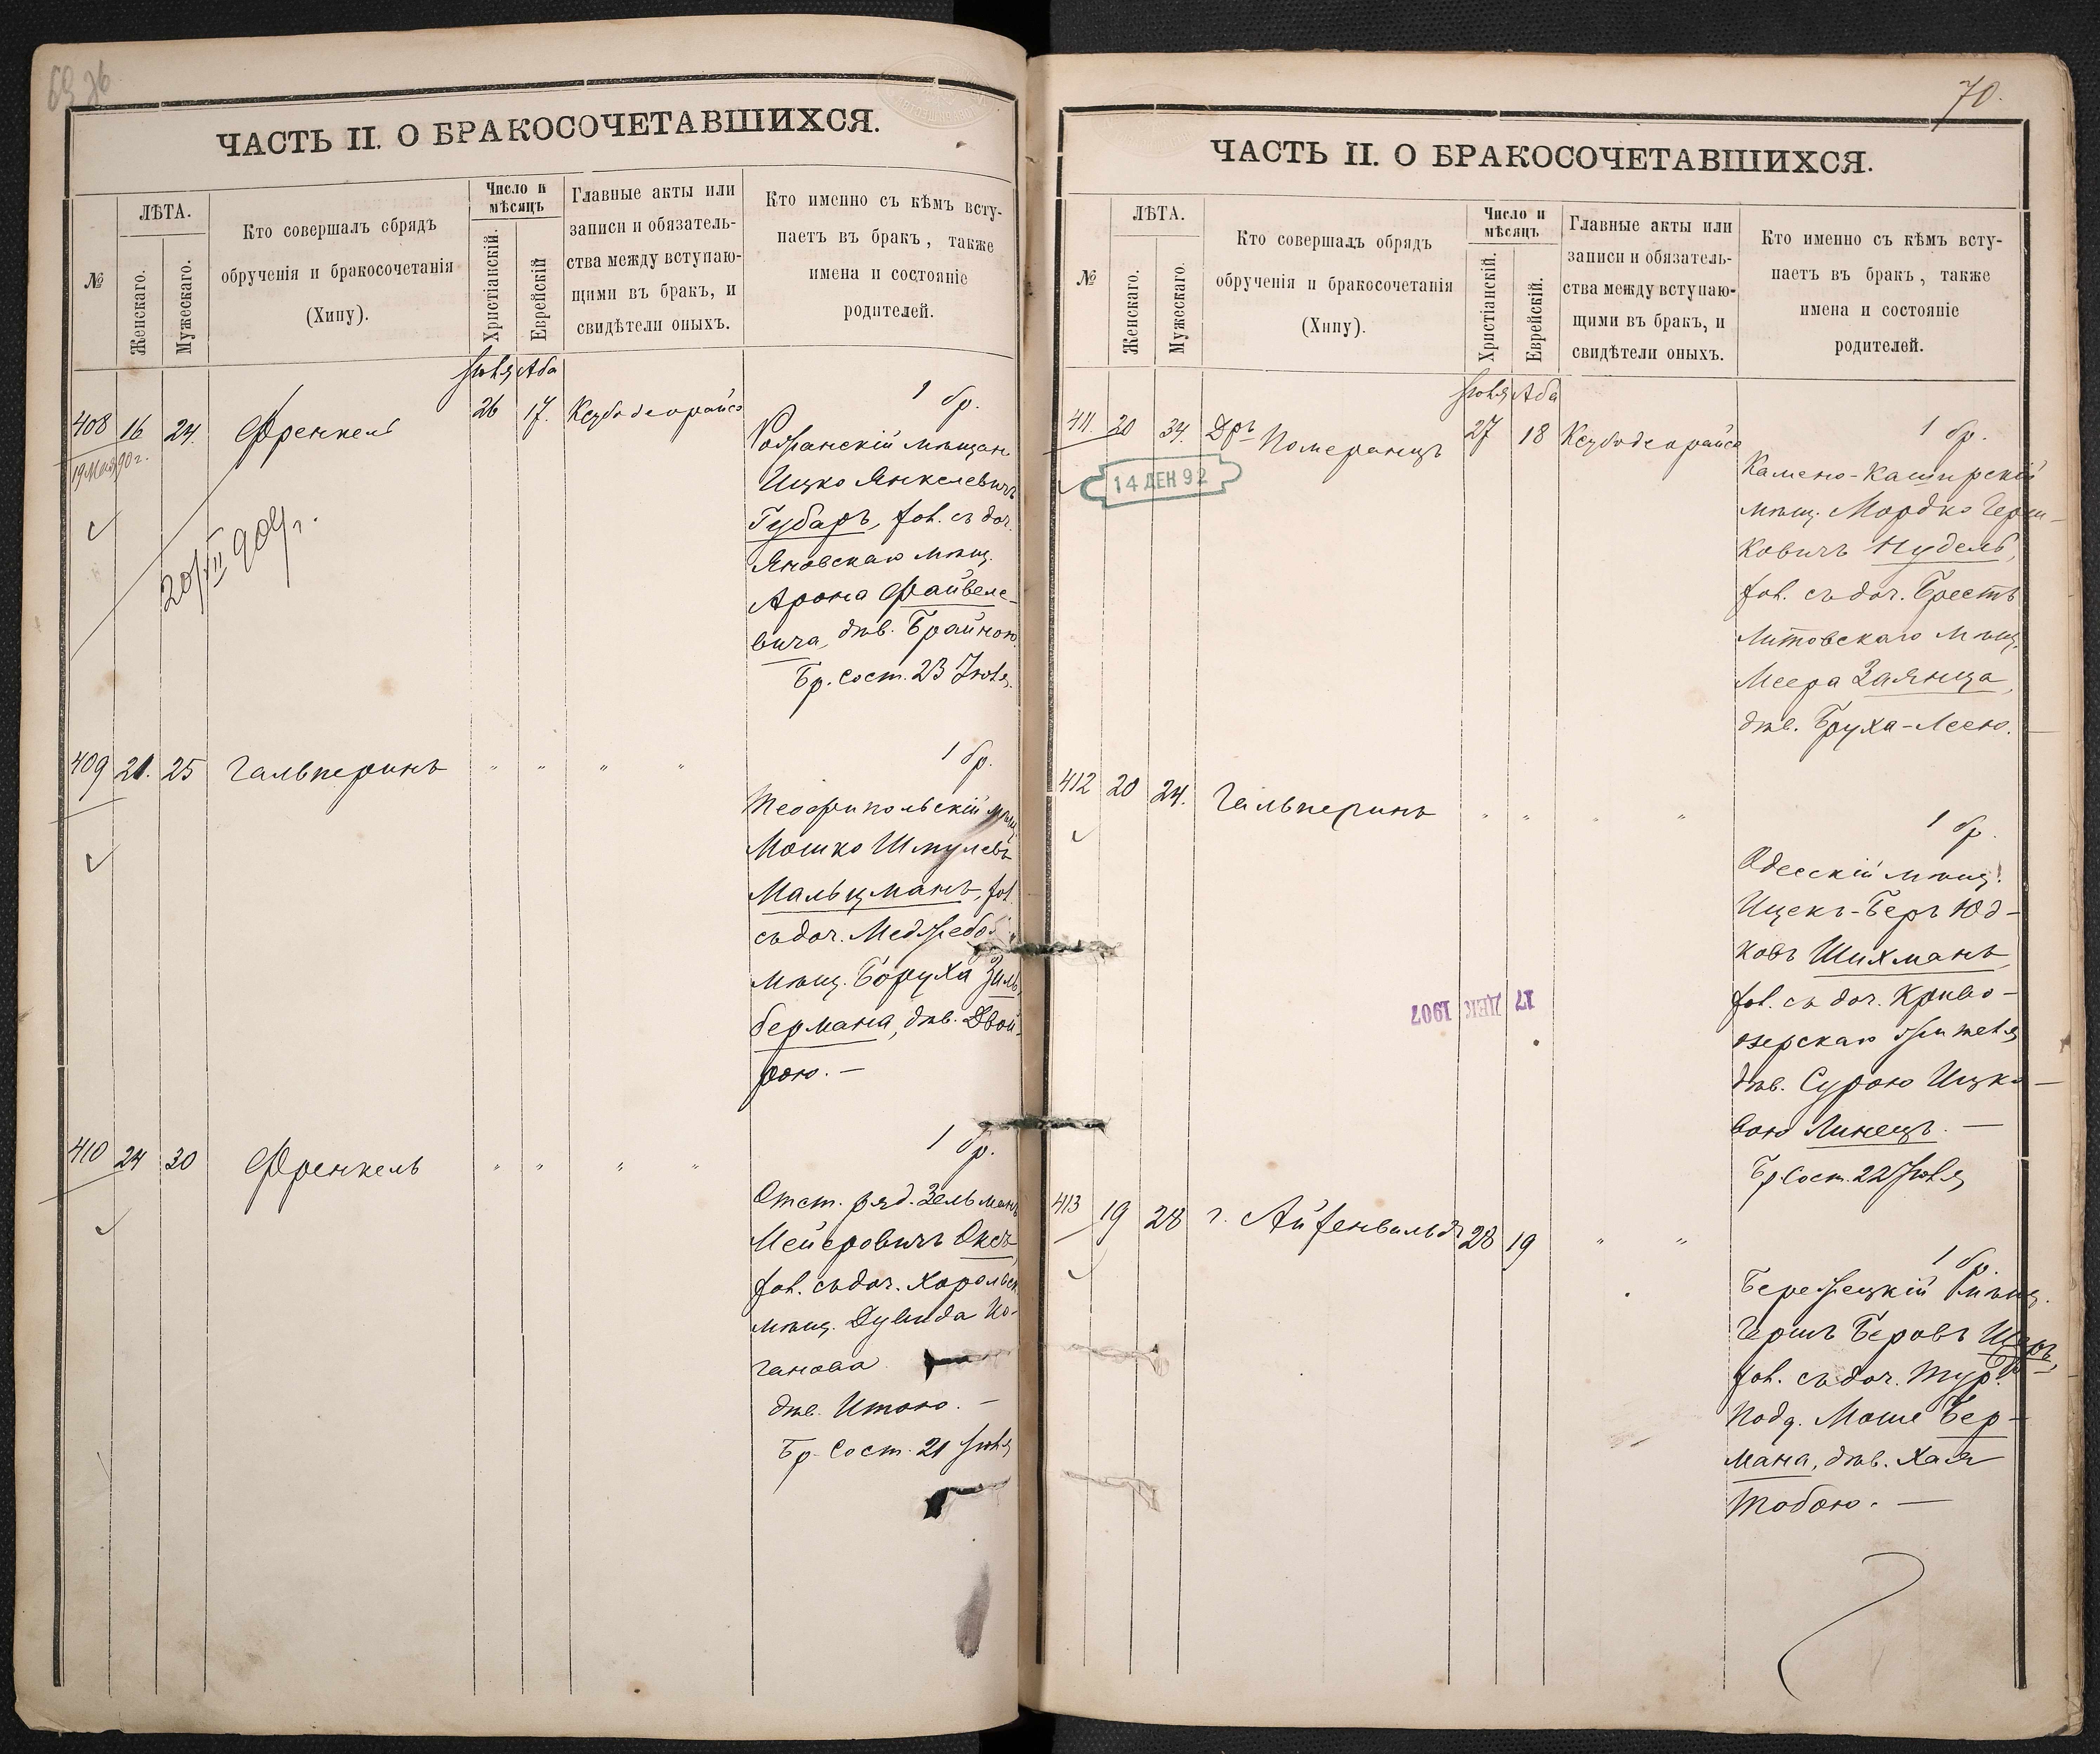 ЧАСТЬ II. О БРАКОСОЧЕТАВШИХСЯ.
№
ЛѢТА.
Женскаго.
Мужескаго.
Кто совершалъ обрядъ
обрученія и бракосочетанія
(Хипу).
Число и
мѣсяцъ
Христіанскій.
Еврейскій
Главные акты или
записи и обязатель-
ства между вступаю-
щими въ бракъ, и
свидѣтели оныхъ.
Кто именно съ кѣмъ всту-
паетъ въ бракъ, также
имена и состояніе
родителей.
Іюля Аба
408 16 24. Френкель 26 17. Ксубодеорайсо
19 Мая 90 г.
20/XII 904 г.
1 бр.
Рожанскій мѣщан.
Ицко Янкелевичъ
Губаръ, хол. съ доч.
Яновскаго мѣщ.
Арона Файвеле-
вича, дѣв. Брайною
Бр. сост. 23 Іюля.
409 21. 25 Гальперинъ " " " "
1 бр.
Теофипольскій мѣщ.
Мошко Шмулевъ
Мальцманъ, хол.
съ доч. Меджебож.
мѣщ. Боруха Зиль
бермана, дѣв. Двой
рою. —
410 24 30 Френкель " " " "
1 бр.
Отст. ряд. Зельманъ
Мейеровичъ Оксъ,
хол. съ доч. Хорольск.
мѣщ. Дувида Ко-
ганова
дѣв. Итою. —
Бр. Сост. 21 Іюля
70.
ЧАСТЬ II. О БРАКОСОЧЕТАВШИХСЯ.
№
ЛѢТА.
Женскаго.
Мужескаго.
Кто совершалъ обрядъ
обрученія и бракосочетанія
(Хипу).
Число и
мѣсяцъ
Христіанскій.
Еврейскій.
Главные акты или
записи и обязатель-
ства между вступаю-
щими въ бракъ, и
свидѣтели оныхъ.
Кто именно съ кѣмъ всту-
паетъ въ бракъ, также
имена и состояніе
родителей.
Іюля Аба
411. 20 34. Дръ Померанцъ 27 18 Ксубодеорайсо
14 ДЕН 92
1 бр.
Камено-Каширскій
мѣщ. Мордко Герш-
ковичъ Нудель,
хол. съ доч. Брестъ
Литовскаго мѣщ.
Меера Заянца,
дѣв. Бруха-Леею.
412 20 24. Гальперинъ " " " "
1 бр.
Одесскій мѣщ.
Ицекъ-Беръ Юд-
ковъ Шихманъ,
хол. съ доч. Криво-
озерскаго жителя
дѣв. Сурою Ицко-
вою Линецъ. —
Бр. Сост. 22 Іюля
17 ДЕК 1907
413 19 28 г. Айзенвальдъ 28 19 " "
1 бр.
Бережецкій мѣщ.
Гершъ Беровъ
хол. съ доч. Тур.
подд. Моше Бер-
мана, дѣв. Хая
Тобою. —